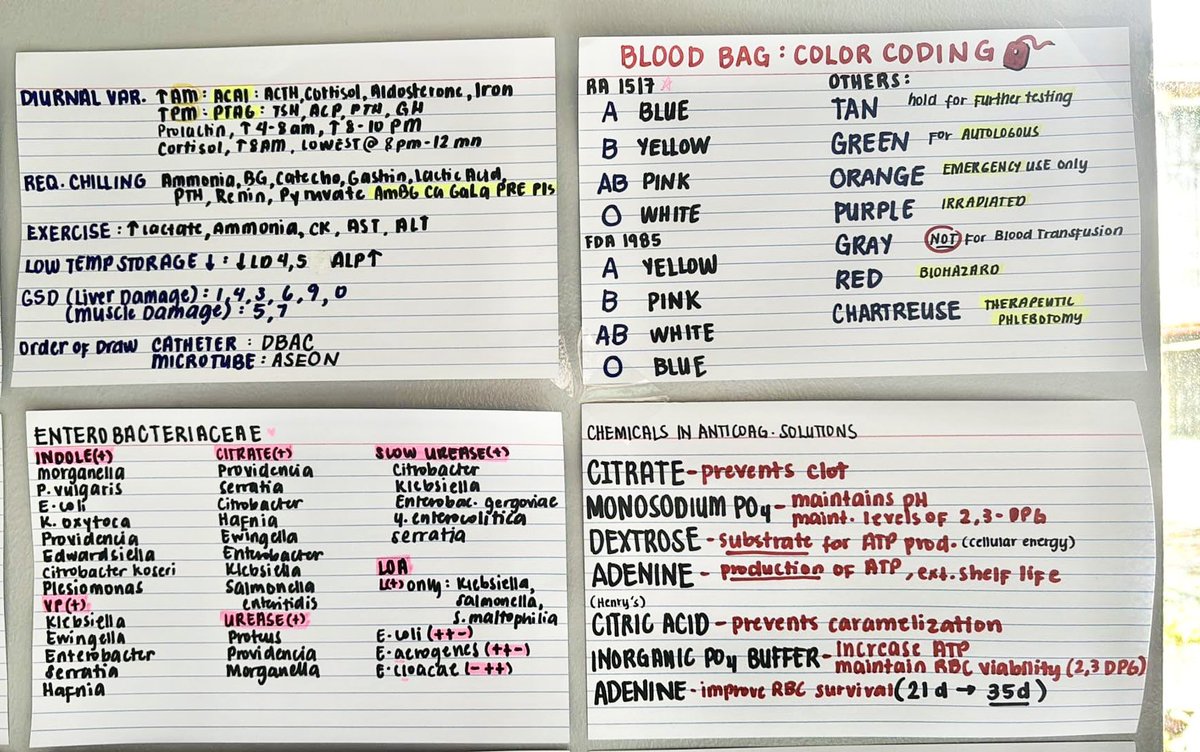 DIURNAL VAR. ↑AM: ACAI: ACTH, Cortisol, Aldosterone, Iron
↑PM: PTAG: TSH, ACP, PTH, GH
Prolactin, ↑4-8am, ↑8-10 PM
Cortisol, ↑8AM, LOWEST @ 8pm-12mn
REQ. CHILLING Ammonia, BG, Catecho, Gastrin, Lactic Acid,
PTH, Renin, Pyruvate AmBG Ca GaLa PRE PIs
EXERCISE: ↑Lactate, Ammonia, CK, AST, ALT
LOW TEMP STORAGE ↓: ↓LD 4,5 ALP↑
GSD (Liver Damage): 1, 4, 3, 6, 9, 0
(muscle Damage): 5, 7
Order of Draw CATHETER: DBAC
MICROTUBE: ASEON
BLOOD BAG: COLOR CODING
RA 1517
A BLUE
B YELLOW
AB PINK
O WHITE
FDA 1985
A YELLOW
B PINK
AB WHITE
O BLUE
OTHERS:
TAN hold for further testing
GREEN for AUTOLOGOUS
ORANGE EMERGENCY use only
PURPLE IRRADIATED
GRAY NOT for Blood Transfusion
RED BIOHAZARD
CHARTREUSE THERAPEUTIC
PHLEBOTOMY
ENTEROBACTERIACEAE
INDOLE(+)
morganella
P. vulgaris
E. coli
K. oxytoca
Providencia
Edwardsiella
Citrobacter koseri
Plesiomonas
VP(+)
Klebsiella
Ewingella
Enterobacter
Serratia
Hafnia
CITRATE(+)
Providencia
Serratia
Citrobacter
Hafnia
Ewingella
Enterobacter
Klebsiella
Salmonella
enteritidis
UREASE(+)
Proteus
Providencia
Morganella
SLOW UREASE(+)
Citrobacter
Klebsiella
Enterobac. gergoviae
Y. enterocolitica
serratia
LOA
L(+) only: Klebsiella,
Salmonella,
S. maltophilia
E. coli (++-)
E. aerogenes (++-)
E. cloacae (-++)
CHEMICALS IN ANTICOAG. SOLUTIONS
CITRATE - prevents clot
MONOSODIUM PO4 - maintains pH
maint. levels of 2,3-DPG
DEXTROSE - substrate for ATP prod. (cellular energy)
ADENINE - production of ATP, ext. shelf life
(Henry's)
CITRIC ACID - prevents caramelization
INORGANIC PO4 BUFFER - Increase ATP
maintain RBC viability (2,3 DPG)
ADENINE - improve RBC survival (21 d → 35d)